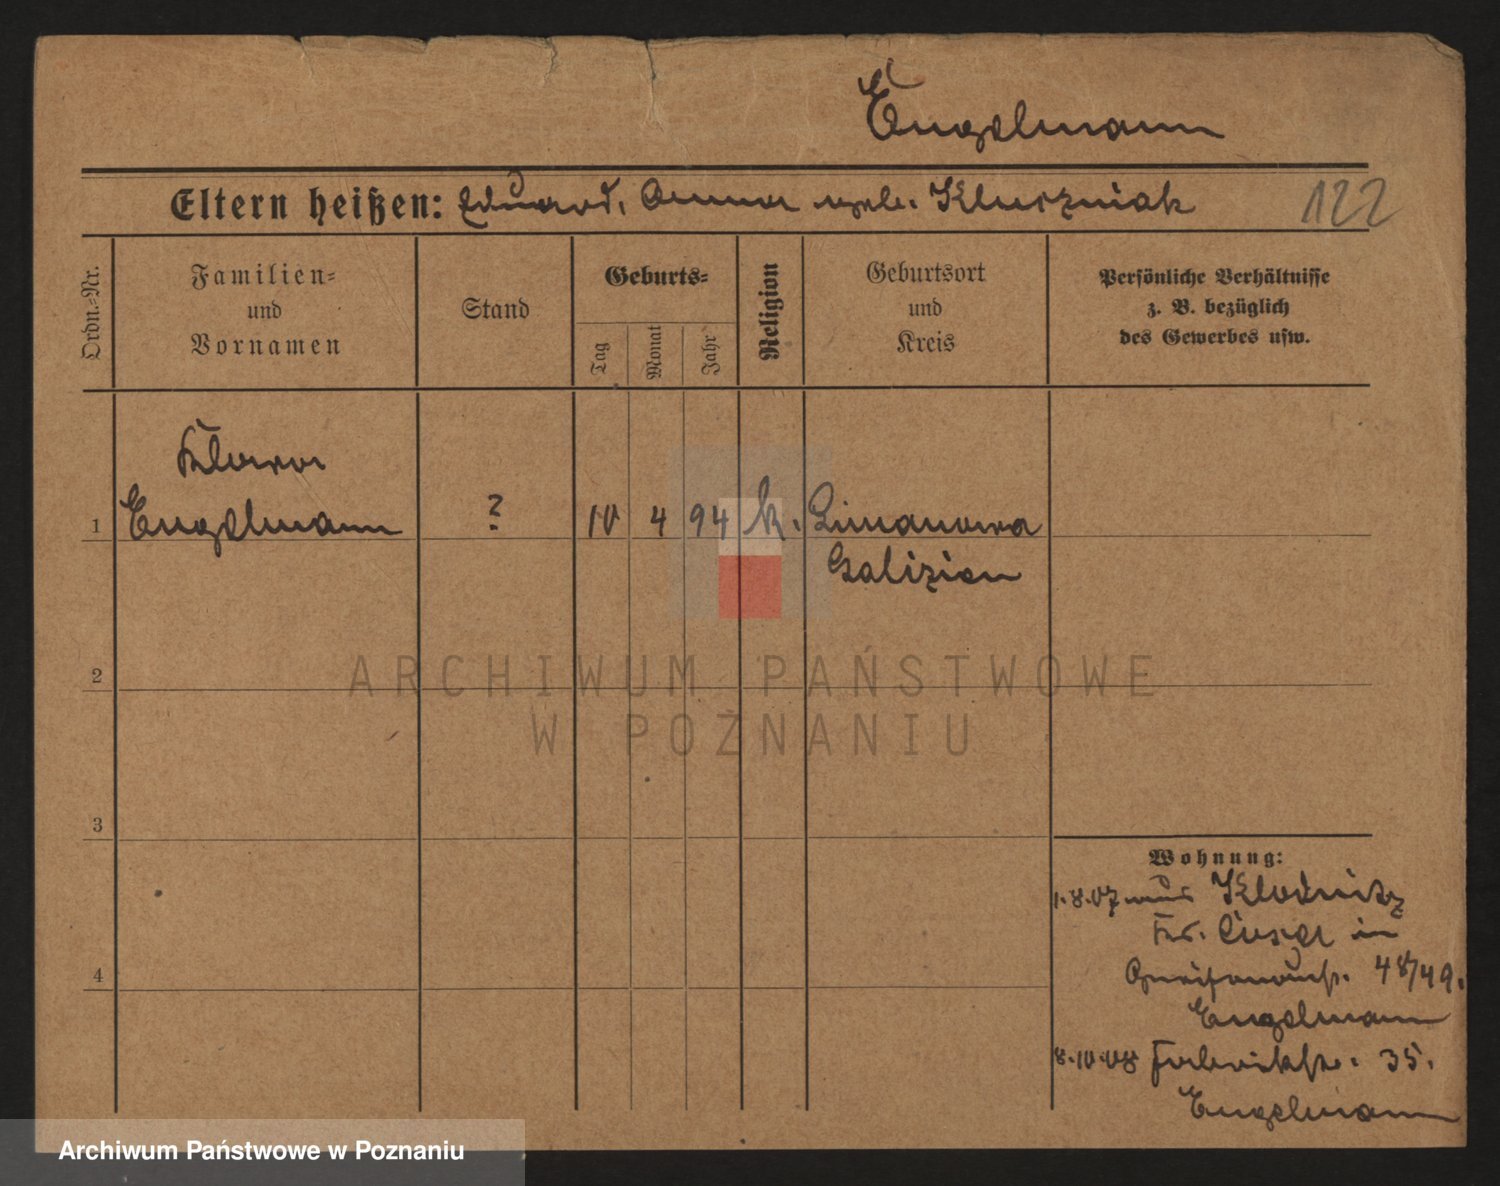 Engelmann
Eltern heißen: Eduard, Anna geb. Kluczniak
122
Ordn.-Nr.
Familien-
und
Vornamen
Stand
Geburts-
Tag
Monat
Jahr
Religion
Geburtsort
und
Kreis
Persönliche Verhältnisse
z. B. bezüglich
des Gewerbes usw.
Klara
1 Engelmann ? 10 4 94 k. Limanowa
Galizien
2
3
4
Wohnung:
1.8.07 aus Klodnitz
Kr. Cosel in
48/49.
Engelmann
8.10.08 Fabrikstr. 35.
Engelmann
ARCHIWUM PAŃSTWOWE
W POZNANIU
Archiwum Państwowe w Poznaniu